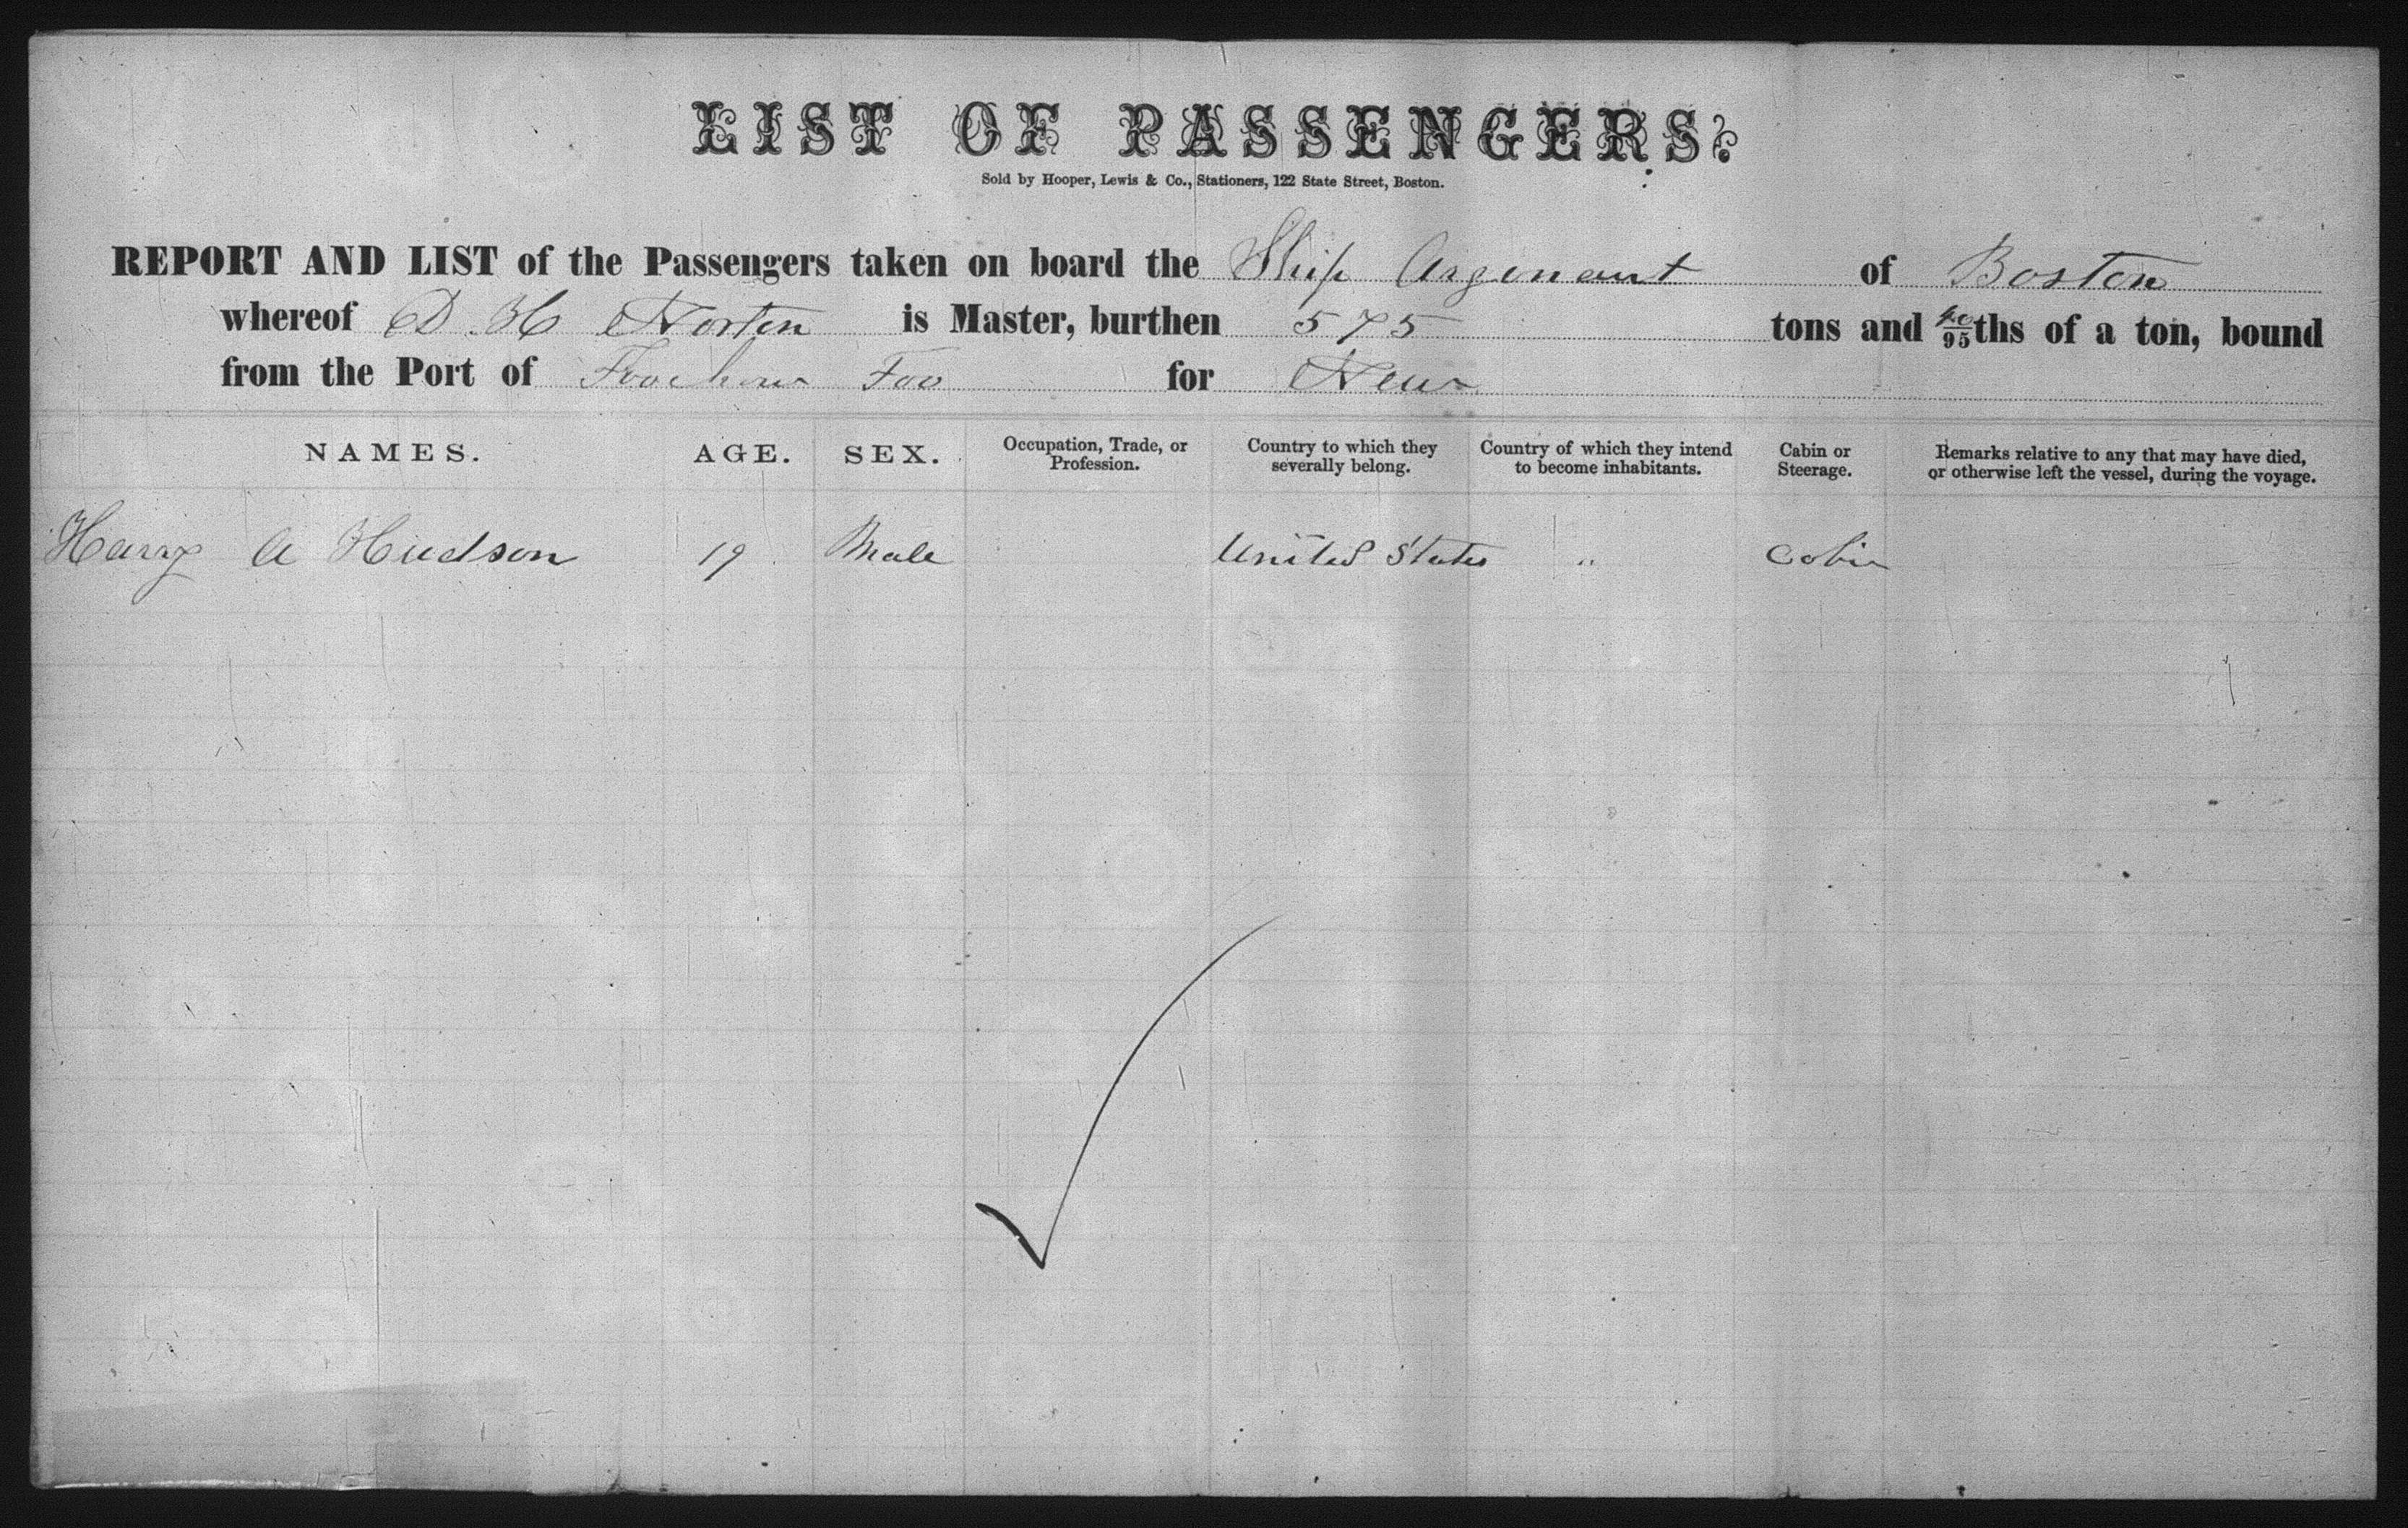 LIST OF PASSENGERS.
Sold by Hooper, Lewis & Co., Stationers, 122 State Street, Boston.
REPORT AND LIST of the Passengers taken on board the Ship Argonaut of Boston
whereof D. H Norton is Master, burthen 575 tons and 40/95ths of a ton, bound
from the Port of Foochow Foo for New
NAMES. AGE. SEX. Occupation, Trade, or Profession. Country to which they severally belong. Country of which they intend to become inhabitants. Cabin or Steerage. Remarks relative to any that may have died, or otherwise left the vessel, during the voyage.
Harry A Hudson 19 Male United States " Cabin